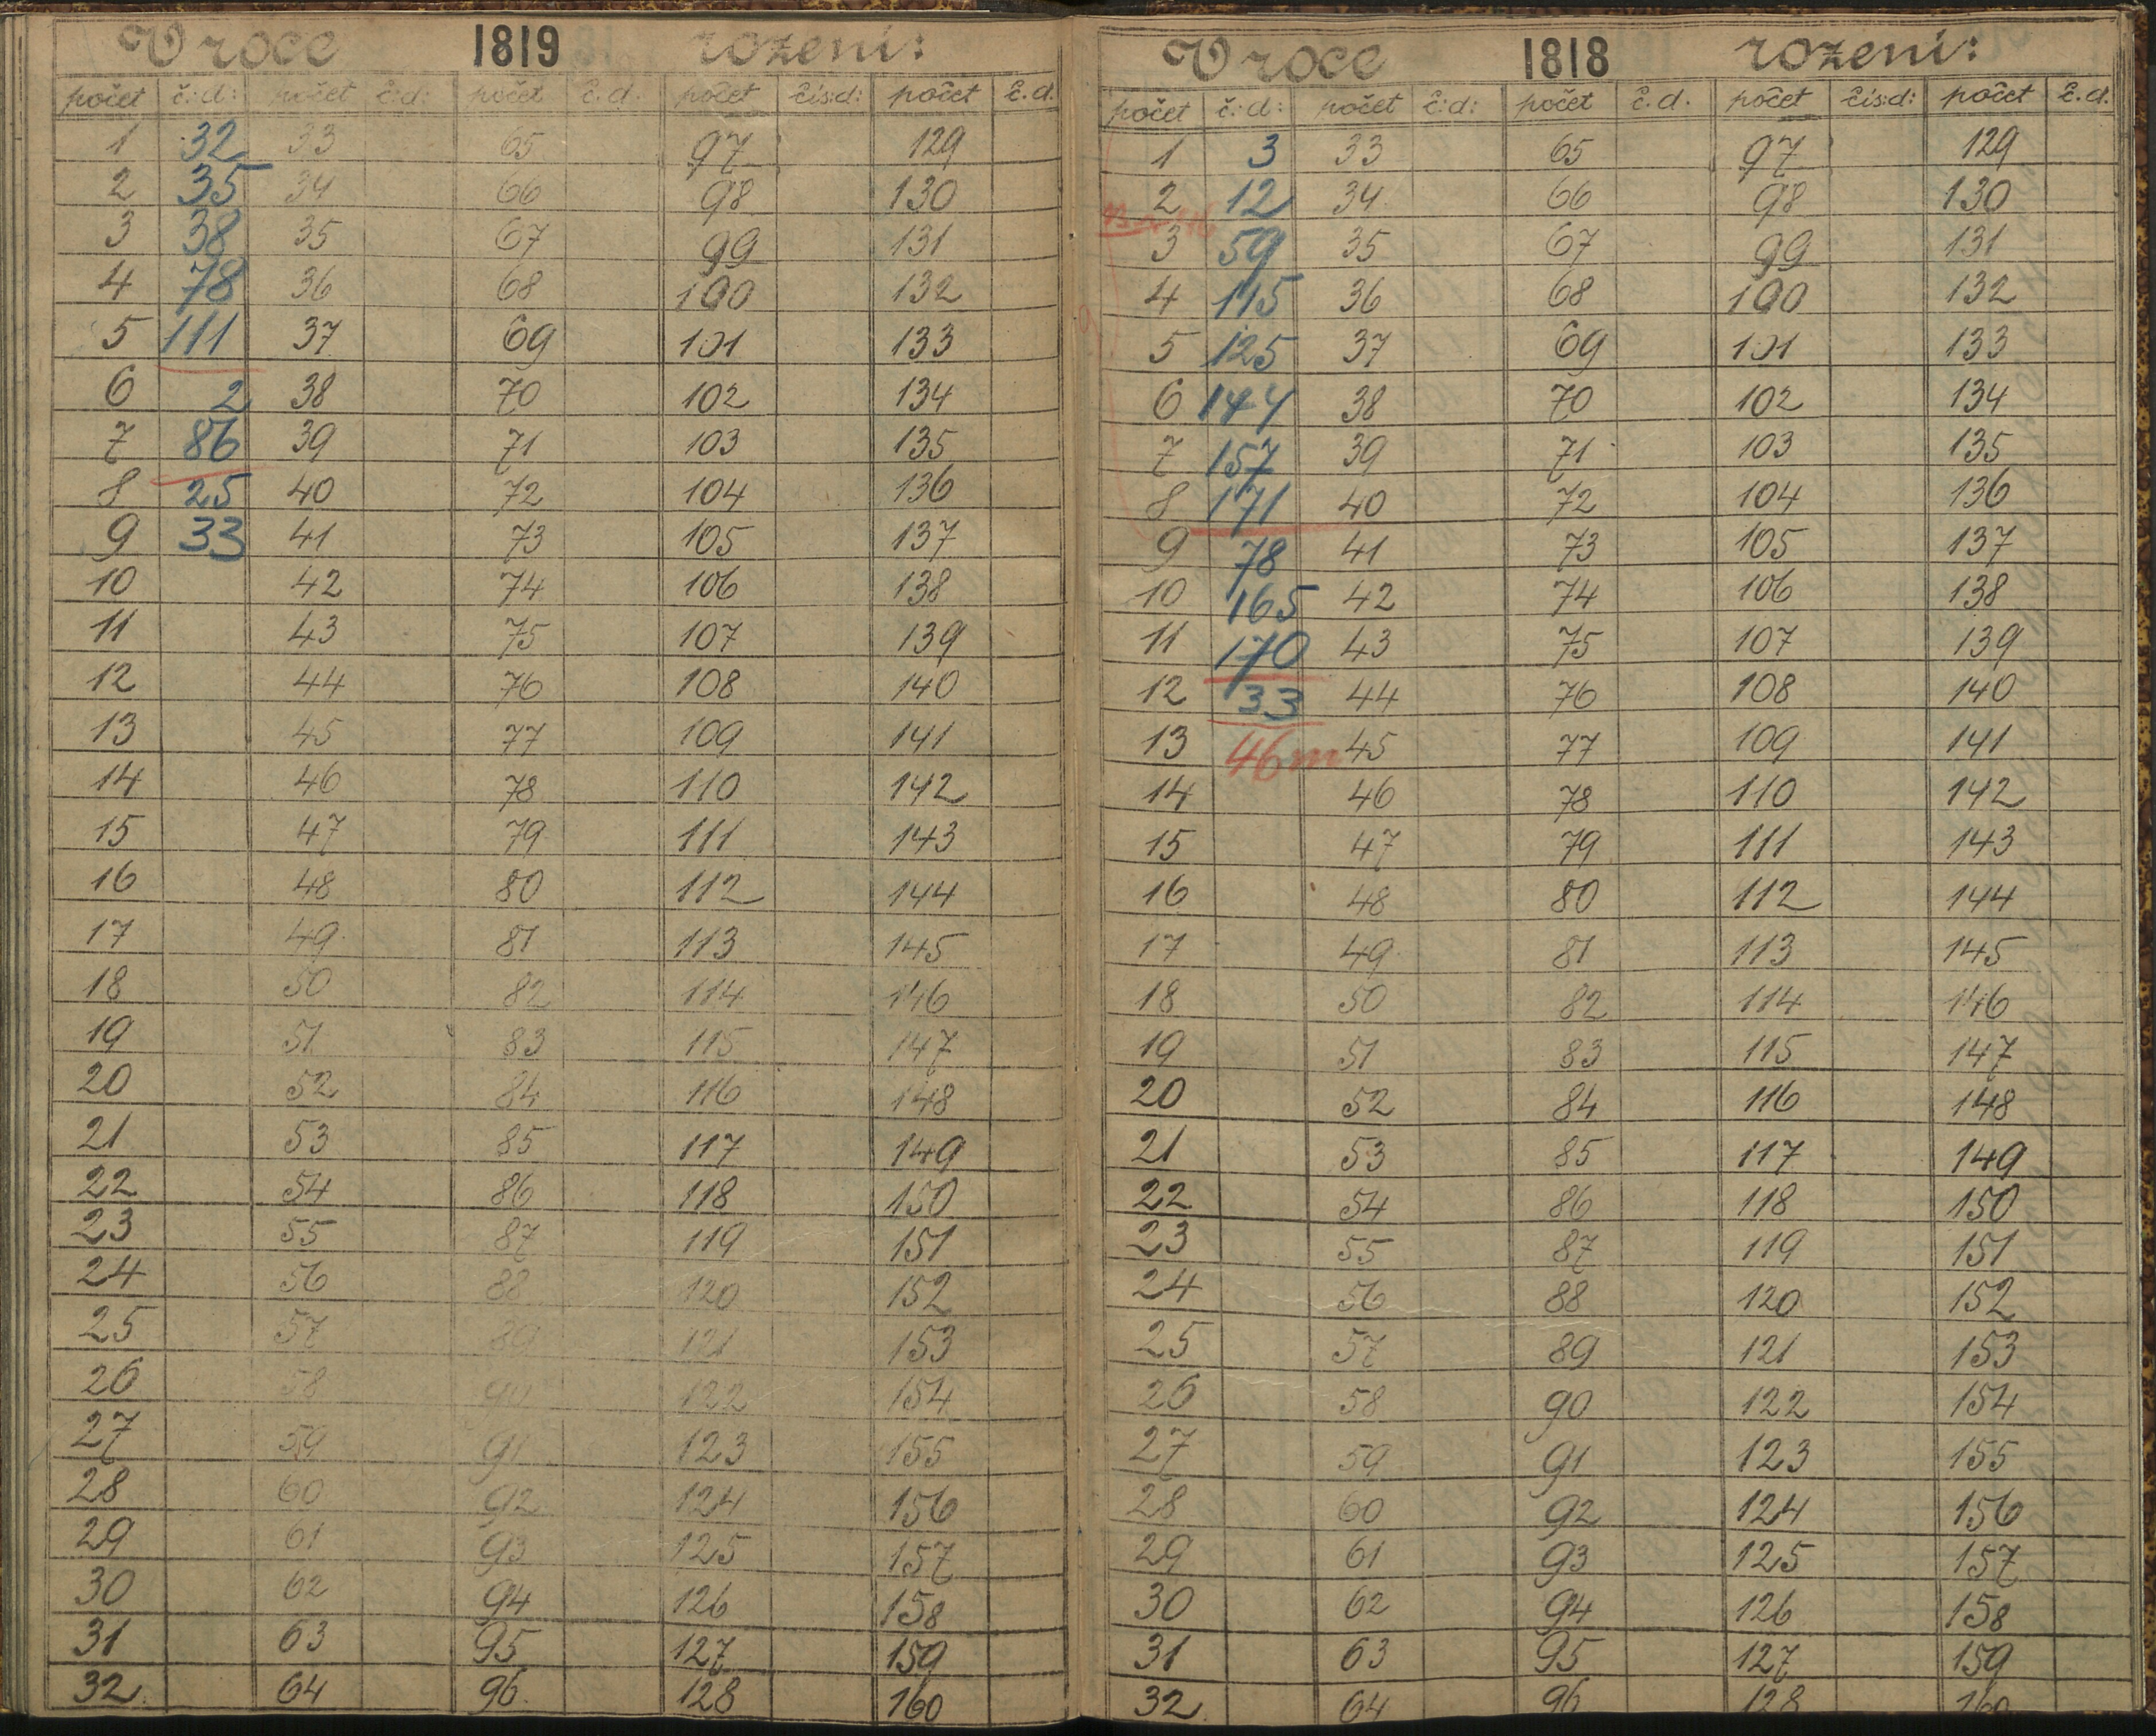 V roce 1819 rozeni:
počet č:d: počet č:d: počet č.d. počet čís:d: počet č.d.
1 32 33 65 97 129
2 35 34 66 98 130
3 38 35 67 99 131
4 78 36 68 100 132
5 111 37 69 101 133
6 2 38 70 102 134
7 86 39 71 103 135
8 25 40 72 104 136
9 33 41 73 105 137
10 42 74 106 138
11 43 75 107 139
12 44 76 108 140
13 45 77 109 141
14 46 78 110 142
15 47 79 111 143
16 48 80 112 144
17 49 81 113 145
18 50 82 114 146
19 51 83 115 147
20 52 84 116 148
21 53 85 117 149
22 54 86 118 150
23 55 87 119 151
24 56 88 120 152
25 57 89 121 153
26 58 90 122 154
27 59 91 123 155
28 60 92 124 156
29 61 93 125 157
30 62 94 126 158
31 63 95 127 159
32 64 96 128 160
V roce 1818 rozeni:
počet č:d: počet č:d: počet č.d. počet čís:d: počet č.d.
1 3 33 65 97 129
2 12 34 66 98 130
3 59 35 67 99 131
4 115 36 68 100 132
5 125 37 69 101 133
6 144 38 70 102 134
7 157 39 71 103 135
8 171 40 72 104 136
9 78 41 73 105 137
10 165 42 74 106 138
11 170 43 75 107 139
12 33 44 76 108 140
13 46m 45 77 109 141
14 46 78 110 142
15 47 79 111 143
16 48 80 112 144
17 49 81 113 145
18 50 82 114 146
19 51 83 115 147
20 52 84 116 148
21 53 85 117 149
22 54 86 118 150
23 55 87 119 151
24 56 88 120 152
25 57 89 121 153
26 58 90 122 154
27 59 91 123 155
28 60 92 124 156
29 61 93 125 157
30 62 94 126 158
31 63 95 127 159
32 64 96 128 160